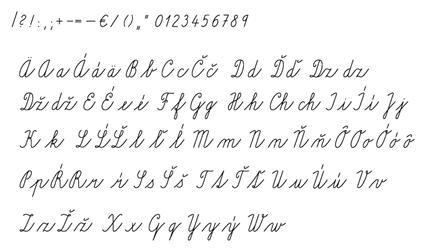 |?!:,.;+-=–€/()„“ 0123456789
Ä A a Á á ä B b C c Č č D d Ď ď Dz dz
Dž dž E É e é F f G g H h Ch ch I i Í í J j
K k L Ĺ Ľ l ľ ĺ M m N n Ň ň Ô O o Ó ó ô
P p Ŕ R r ŕ S s Š š T t Ť ť U u Ú ú V v
Z z Ž ž X x Q q Y y ý W w